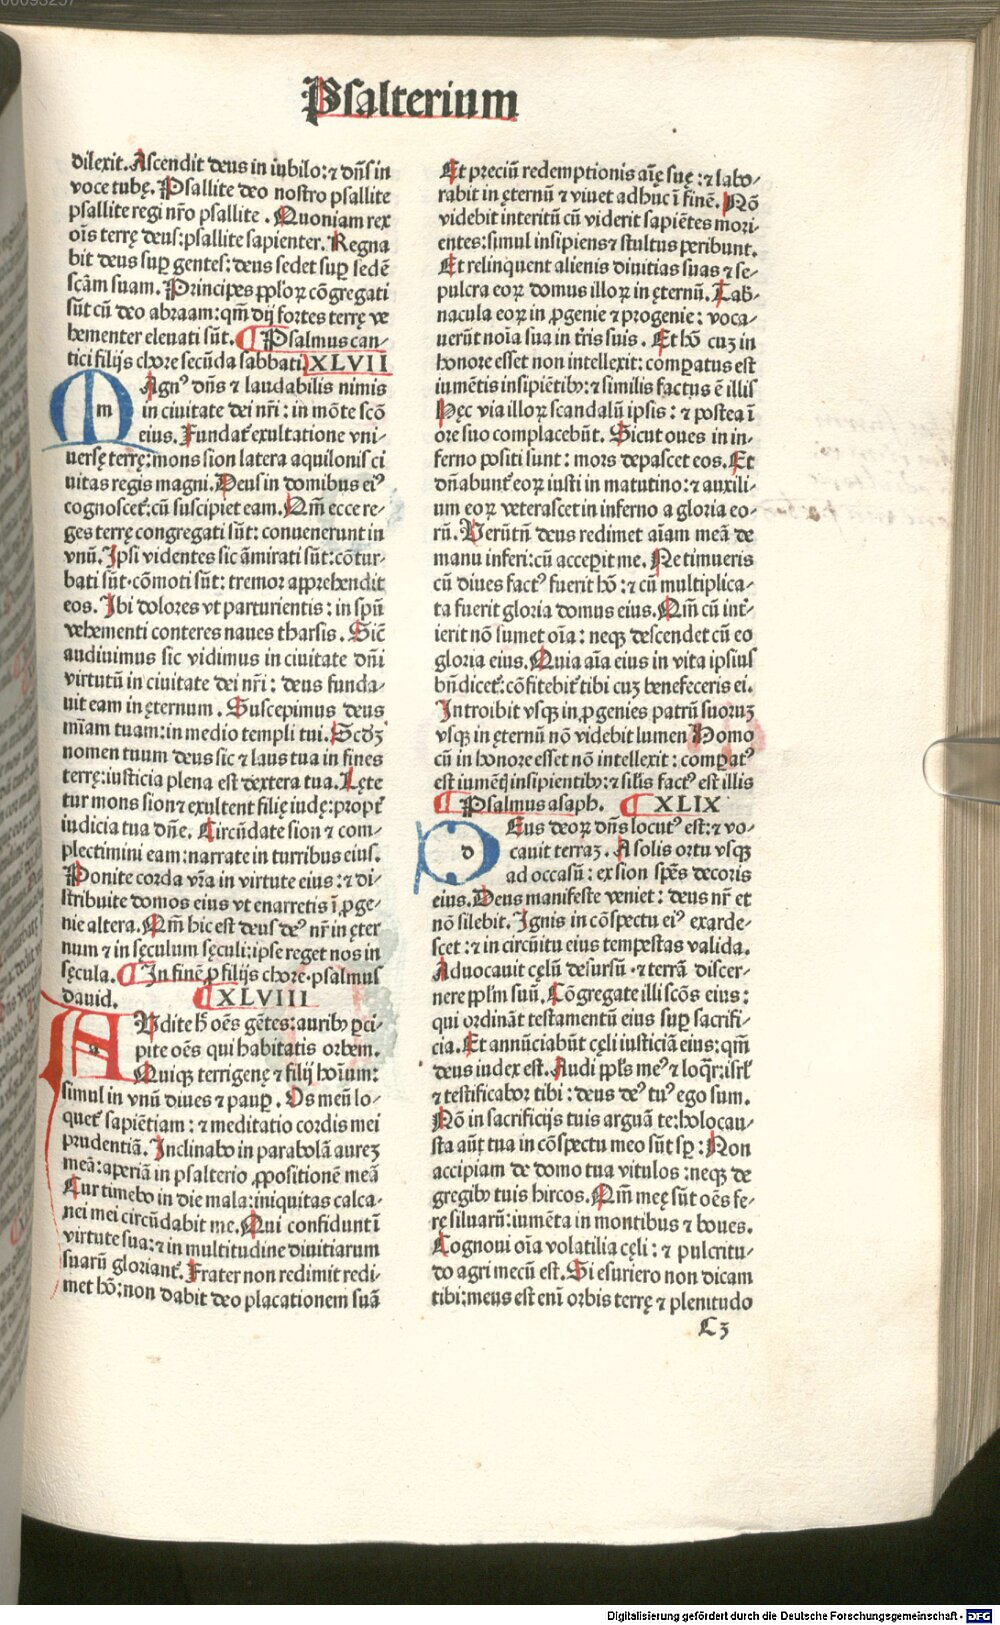 00093257
Psalterium
dilexit. Ascendit deus in iubilo: ⁊ dñs in
voce tubę. Psallite deo nostro psallite
psallite regi nr̃o psallite. Quoniam rex
oĩs terrę deus: psallite sapienter. Regna
bit deus suꝑ gentes: deus sedet suꝑ sedē
scãm suam. Principes pplo℞ cõgregati
sũt cũ deo abraam: qm̃ dij fortes terrę ve
hementer eleuati sũt. Psalmus can-
tici filijs chore secũda sabbati XLVII
m Agnꝰ dñs ⁊ laudabilis nimis
in ciuitate dei nr̃i: in mõte scõ
eius. Fundat᷑ exultatione vni-
uersę terrę: mons sion latera aquilonis ci
uitas regis magni. Deus in domibus eiꝰ
cognoscet᷑: cũ suscipiet eam. Qm̃ ecce re-
ges terrę congregati sũt: conuenerunt in
vnũ. Ipsi videntes sic ãmirati sũt: cõtur-
bati sũt: cõmoti sũt: tremor apprehendit
eos. Ibi dolores vt parturientis: in spũ
vehementi conteres naues tharsis. Sic̃
audiuimus sic vidimus in ciuitate dñi
virtutũ in ciuitate dei nr̃i: deus funda-
uit eam in ęternum. Suscepimus deus
mĩam tuam: in medio templi tui. Scd̃ꝫ
nomen tuum deus sic ⁊ laus tua in fines
terrę: iusticia plena est dextera tua. Lęte
tur mons sion ⁊ exultent filię iudę: propt̃
iudicia tua dñe. Circũdate sion ⁊ com-
plectimini eam: narrate in turribus eius.
Ponite corda vr̃a in virtute eius: ⁊ di-
stribuite domos eius vt enarretis ĩ ꝓge-
nie altera. Qm̃ hic est deus deꝰ nr̃ in ęter
num ⁊ in sęculum sęculi: ipse reget nos in
sęcula. In finẽ ꝓ filijs chore psalmus
dauid. XLVIII
a AUdite h̃ oẽs gẽtes: auribꝰ ꝑci-
pite oẽs qui habitatis orbem.
Quiqꝫ terrigenę ⁊ filij hoĩum:
simul in vnũ diues ⁊ pauꝑ. Os meũ lo-
quet᷑ sapiẽtiam: ⁊ meditatio cordis mei
prudentiã. Inclinabo in parabolã aureꝫ
meã: aperiã in psalterio ꝓpositionẽ meã
Cur timebo in die mala: iniquitas calca-
nei mei circũdabit me. Qui confidunt ĩ
virtute sua: ⁊ in multitudine diuitiarum
suarũ gloriant᷑. Frater non redimit redi-
met hõ: non dabit deo placationem suã
Et preciũ redemptionis aĩę suę: ⁊ labo-
rabit in ęternũ ⁊ viuet adhuc ĩ finẽ. Nõ
videbit interitũ cũ viderit sapiẽtes mori-
entes: simul insipiens ⁊ stultus peribunt.
Et relinquent alienis diuitias suas ⁊ se-
pulcra eo℞ domus illo℞ in ęternũ. Tab̃-
nacula eo℞ in ꝓgenie ⁊ progenie: voca-
uerũt noĩa sua in tr̃is suis. Et hõ cuꝫ in
honore esset non intellexit: comꝑatus est
iumẽtis insipiẽtibꝰ: ⁊ similis factus ẽ illis
Hęc via illo℞ scandalũ ipsis: ⁊ postea ĩ
ore suo complacebũt. Sicut oues in in-
ferno positi sunt: mors depascet eos. Et
dñabunt᷑ eo℞ iusti in matutino: ⁊ auxili-
um eo℞ veterascet in inferno a gloria eo-
rũ. Verũtñ deus redimet aĩam meã de
manu inferi: cũ acceꝑit me. Ne timueris
cũ diues factꝰ fuerit hõ: ⁊ cũ multiplica-
ta fuerit gloria domus eius. Qm̃ cũ int̃-
ierit nõ sumet oĩa: neqꝫ descendet cũ eo
gloria eius. Quia aĩa eius in vita ipsius
bñdicet᷑: cõfitebit᷑ tibi cuꝫ benefeceris ei.
Introibit vsqꝫ in ꝓgenies patrũ suoruꝫ
vsqꝫ in ęternũ nõ videbit lumen Homo
cũ in honore esset nõ intellexit: comꝑatꝰ
est iumẽtꝭ insipientibꝰ: ⁊ sil̃is factꝰ est illis
Psalmus asaph. XLIX
d DEus deo℞ dñs locutꝰ est: ⁊ vo-
cauit terraꝫ. A solis ortu vsqꝫ
ad occasũ: ex sion spẽs decoris
eius. Deus manifeste veniet: deus nr̃ et
nõ silebit. Ignis in cõspectu eiꝰ exarde-
scet: ⁊ in circũitu eius tempestas valida.
Aduocauit cęlũ desursũ ⁊ terrã discer-
nere ppl̃m suũ. Cõgregate illi scõs eius:
qui ordinãt testamentũ eius suꝑ sacrifi-
cia. Et annũciabũt cęli iusticiã eius: qm̃
deus iudex est. Audi ppl̃s meꝰ ⁊ loq̃r: isrl̃
⁊ testificabor tibi: deus deꝰ tuꝰ ego sum.
Nõ in sacrificijs tuis arguã te: holocau-
sta aũt tua in cõspectu meo sũt sꝑ: Non
accipiam de domo tua vitulos: neqꝫ de
gregibꝰ tuis hircos. Qm̃ meę sũt oẽs fe-
rę siluarũ: iumẽta in montibus ⁊ boues.
Cognoui oĩa volatilia cęli: ⁊ pulcritu-
do agri mecũ est. Si esuriero non dicam
tibi: meus est eni orbis terrę ⁊ plenitudo
C3
Digitalisierung gefördert durch die Deutsche Forschungsgemeinschaft - DFG